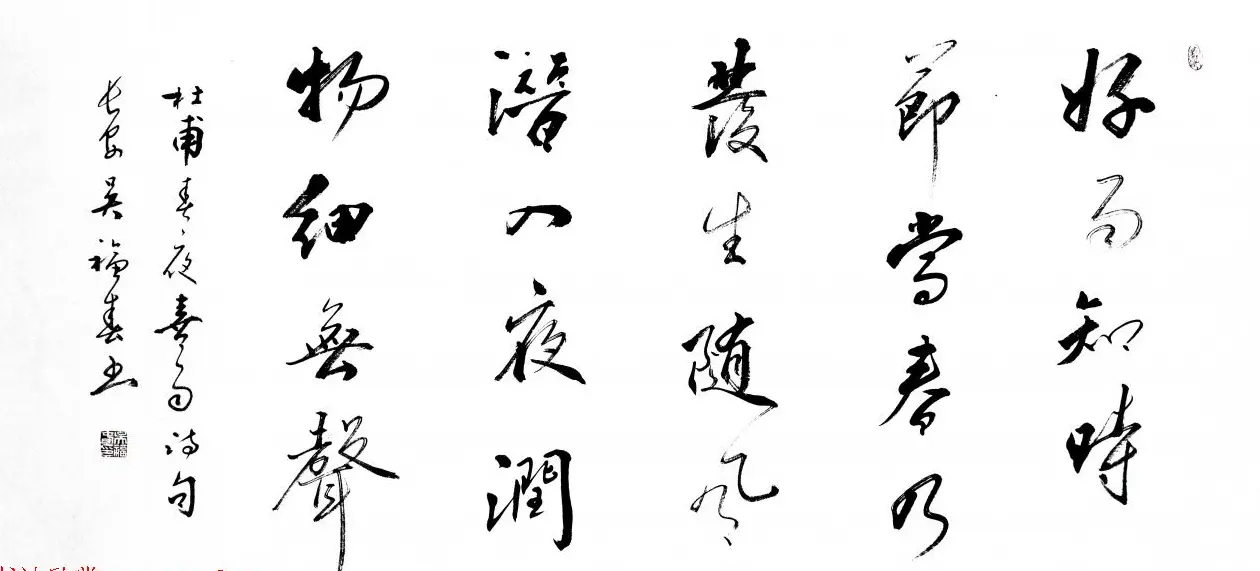 好雨知時
節當春乃
發生随風
潛入夜潤
物細無聲
杜甫春夜喜雨詩句
長安吳福春书